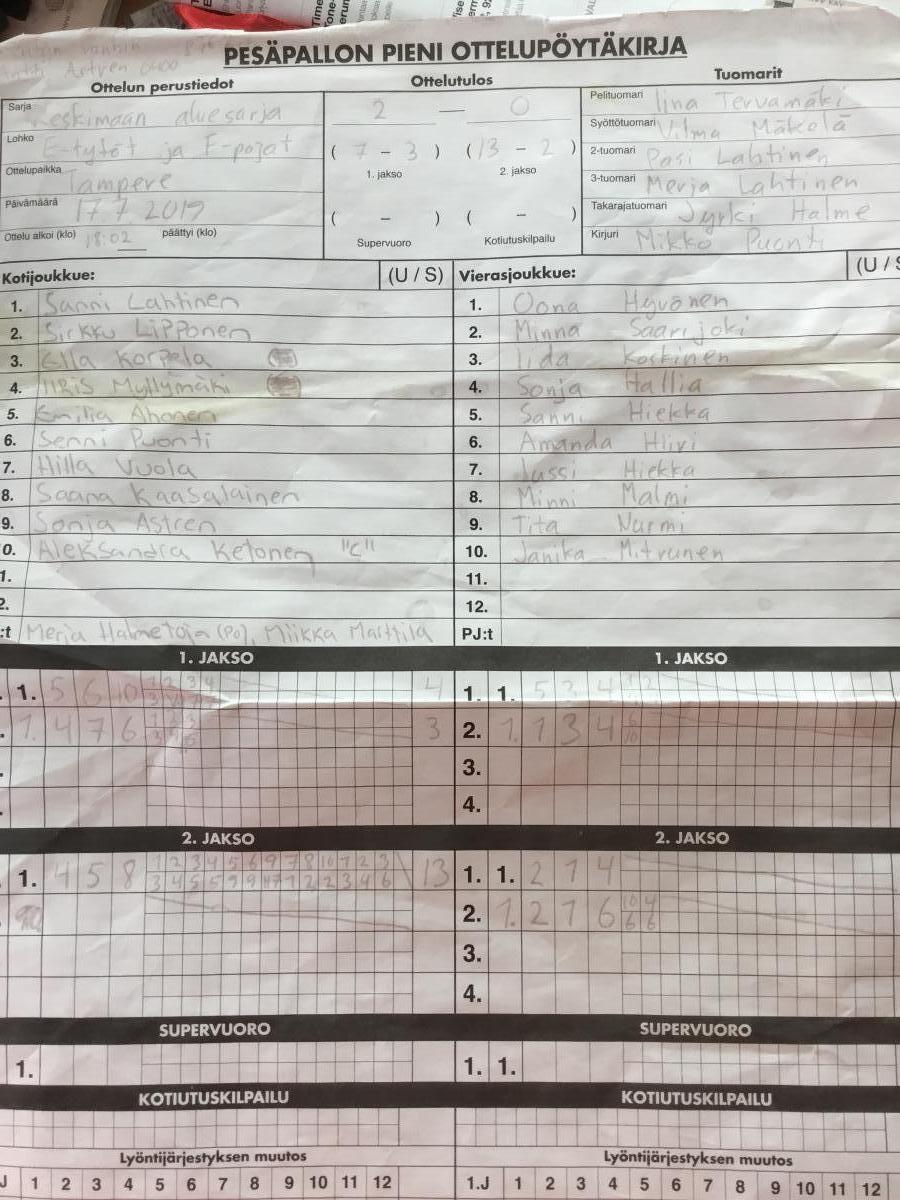 PESÄPALLON PIENI OTTELUPÖYTÄKIRJA
Ottelun perustiedot
Ottelutulos
Tuomarit
Sarja Keskimaan aluesarja
Lohko E-tytöt ja F-pojat
Ottelupaikka Tampere
Päivämäärä 17.7.2019
Ottelu alkoi (klo) 18:02 päättyi (klo)
2 — 0
( 7 - 3 ) ( 13 - 2 )
1. jakso 2. jakso
( - ) ( - )
Supervuoro Kotiutuskilpailu
Pelituomari Iina Tervamäki
Syöttötuomari Vilma Mäkelä
2-tuomari Pasi Lahtinen
3-tuomari Merja Lahtinen
Takarajatuomari Jyrki Halme
Kirjuri Mikko Puonti
Kotijoukkue: (U / S)
1. Sanni Lahtinen
2. Sirkku Lipponen
3. Ella Korpela
4. Iiris Myllymäki
5. Emilia Ahonen
6. Senni Puonti
7. Hilla Vuola
8. Saana Kaasalainen
9. Sonja Astren
0. Aleksandra Ketonen "C"
1.
2.
:t Merja Halmetoja (PO), Miikka Marttila
Vierasjoukkue: (U / S
1. Oona Hyvönen
2. Minna Saarijoki
3. Iida Koskinen
4. Sonja Hallia
5. Sanni Hiekka
6. Amanda
7. Jussi Hiekka
8. Minni Malmi
9. Tita Nurmi
10. Janika Mitrunen
11.
12.
PJ:t
1. JAKSO 1. JAKSO
1. 5 6 10 4
1. 4 7 6 3
1. 1. 5 4
2. 1. 1 3 4
3.
4.
2. JAKSO 2. JAKSO
1. 4 5 8 13
1. 1. 2 7 4
2. 1. 2 7 6
3.
4.
SUPERVUORO SUPERVUORO
1. 1. 1.
KOTIUTUSKILPAILU KOTIUTUSKILPAILU
Lyöntijärjestyksen muutos Lyöntijärjestyksen muutos
J 1 2 3 4 5 6 7 8 9 10 11 12
1.J 1 2 3 4 5 6 7 8 9 10 11 12